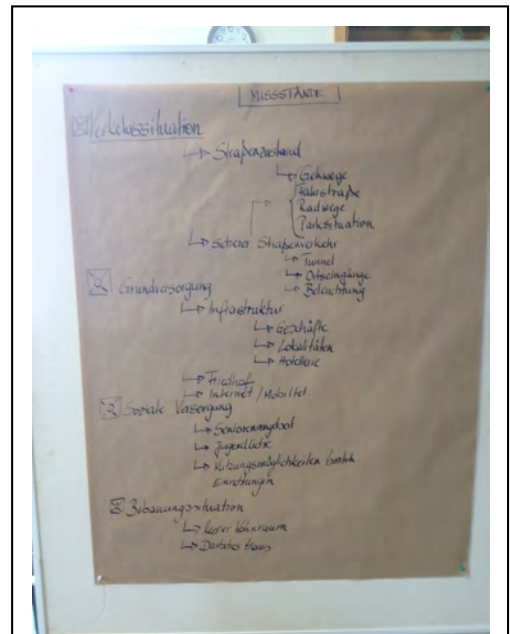 MISSSTÄNDE
Verkehrssituation
↳ Straßenzustand
↳ Gehwege
Fahrstraße
Radwege
Parksituation
↳ Sicherer Straßenverkehr
↳ Tunnel
↳ Ortseingänge
↳ Beleuchtung
Grundversorgung
↳ Infrastruktur
↳ Geschäfte
↳ Lokalitäten
↳ Hotellerie
↳ Friedhof
↳ Internet / Mobiltel.
Soziale Versorgung
↳ Seniorenangebot
↳ Jugendliche
↳ Nutzungsmöglichkeiten
Einrichtungen
Bebauungssituation
↳ leerer Wohnraum
↳ Haus